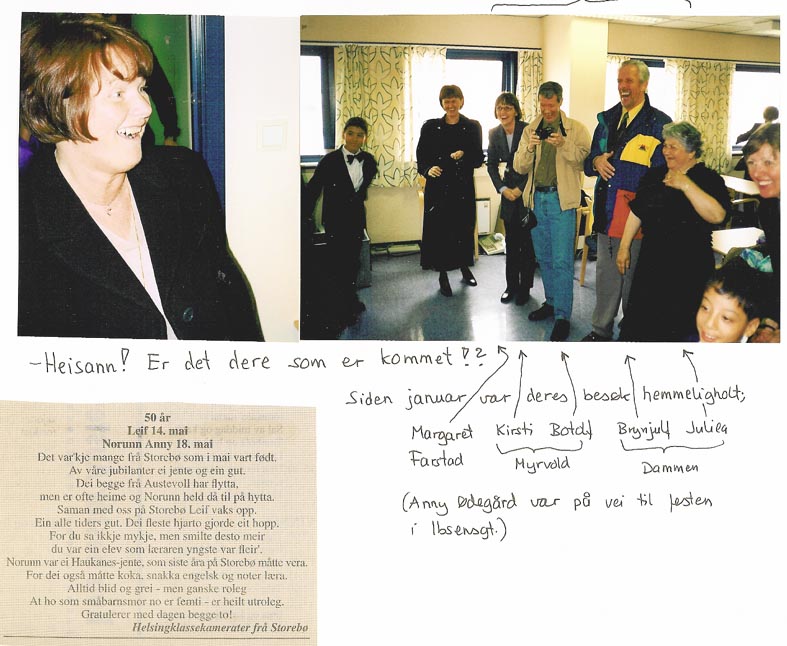 -Heisann! Er det dere som er kommet!?
Siden januar var deres besøk hemmeligholt;
Margaret Farstad
Kirsti Botolf Myrvold
Brynjulf Julieq Dammen
(Anny Ødegård var på vei til festen
i Ibsensgt.)
50 år
Leif 14. mai
Norunn Anny 18. mai
Det var'kje mange frå Storebø som i mai vart født.
Av våre jubilanter ei jente og ein gut.
Dei begge frå Austevoll har flytta,
men er ofte heime og Norunn held då til på hytta.
Saman med oss på Storebø Leif vaks opp.
Ein alle tiders gut. Dei fleste hjarto gjorde eit hopp.
For du sa ikkje mykje, men smilte desto meir
du var ein elev som læraren yngste var fleir'.
Norunn var ei Haukanes-jente, som siste åra på Storebø måtte vera.
For dei også måtte koka, snakka engelsk og noter læra.
Alltid blid og grei - men ganske roleg
At ho som småbarnsmor no er femti - er heilt utroleg.
Gratulerer med dagen begge to!
Helsing klassekamerater frå Storebø